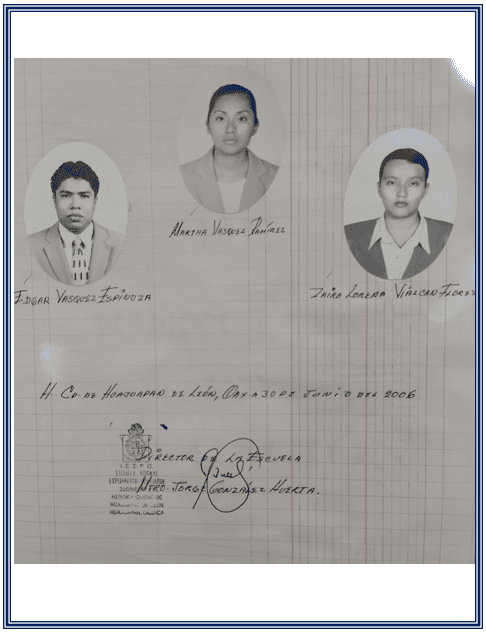 Martha Vasquez Ramírez
Édgar Vasquez Espinoza
Zaira Lorena Vialcan Flores
H. Cd. de Huajuapan de León, Oax. a 30 de Junio del 2006
Director de la Escuela
Mtro. Jorge González Huerta.
I.E.E.P.O.
ESCUELA NORMAL
EXPERIMENTAL
HEROICA CIUDAD DE
HUAJUAPAN DE LEÓN
HUAJUAPAN, OAXACA